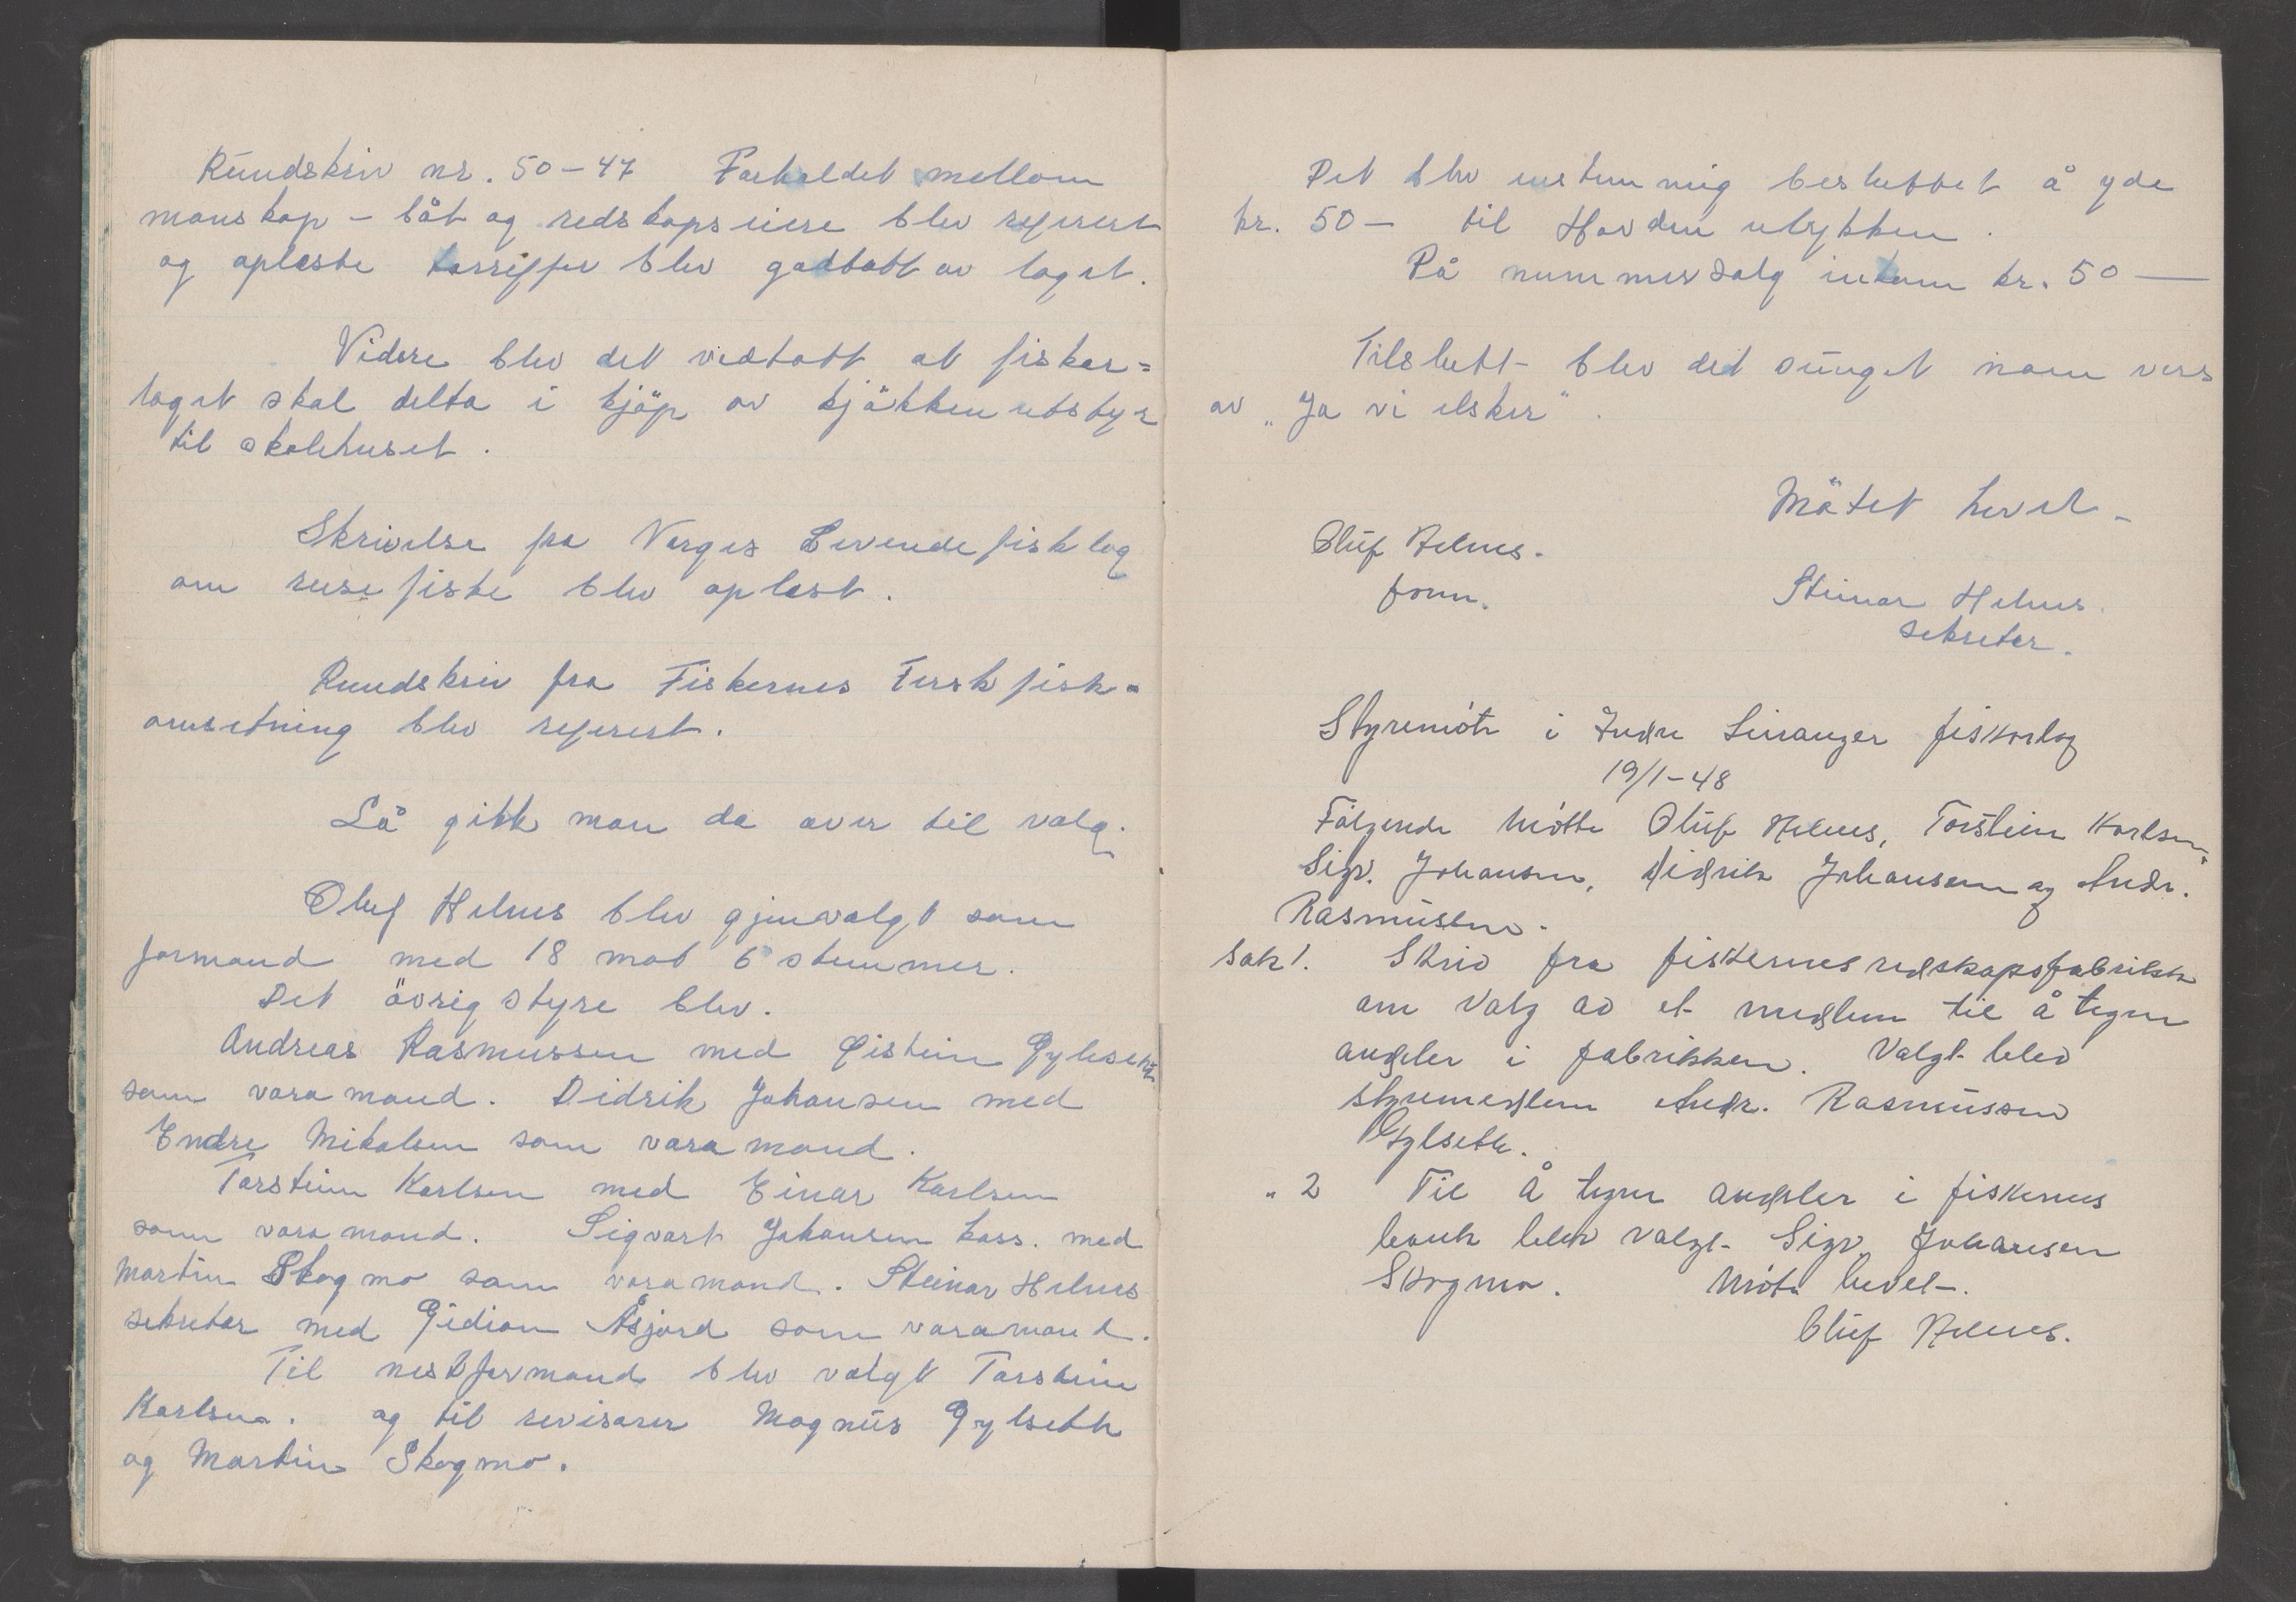 Rundskriv nr. 50-47 Forholdet mellom
manskap - båt og redskapseiere blev referert
og opleste tariffer blev godtatt av laget.
Videre blev det vedtatt at fisker=
laget skal delta i kjöp av kjökkenutstyr
til skolehuset.
Skrivelse fra Norges Levendefisklag
om rusefiske blev oplest.
Rundskriv fra Fiskernes Ferskfisk-
omsetning blev referert.
Så gikk man da over til valg.
Oluf Helnes blev gjenvalgt som
formand med 18 mot 6 stemmer.
Det övrig styre blev.
Andreas Rasmussen med Øistein Gylseth
som varamand. Didrik Johansen med
Endre Mikalsen som varamand.
Torstein Karlsen med Einar Karlsen
som varamand. Sigvart Johansen kass. med
Martin Skogmo som varamand. Steinar Helnes
sekretær med Gidion Åsjord som varamand.
Til nestformand blev valgt Torstein
Karlsen. og til revisorer Magnus Gylseth
og Martin Skogmo.
Det blev enstemmig besluttet å yde
kr. 50- til Havden ulykken.
På nummersalg inkom kr. 50—
Tilslutt blev det sunget noen vers
av „Ja vi elsker".
Mötet hevet-
Oluf Helnes.
form.
Steinar Helnes.
sekretær.
Styremöte i Indre Sinanger fiskarlag
19/1-48
Fölgende mötte Oluf Helnes, Torstein Karlsen,
Sigv. Johansen, Didrik Johansen og Andr.
Rasmussen.
Sak 1. Skriv fra fiskernes redskapsfabrikk
om valg av et medlem til å tegne
andeler i fabrikken. Valgt blev
styremedlem Andr. Rasmussen
Gylseth.
" 2 Til å tegne andeler i fiskernes
bank blev valgt Sigv. Johansen
Skogmo. Möte hevet-.
Oluf Helnes.